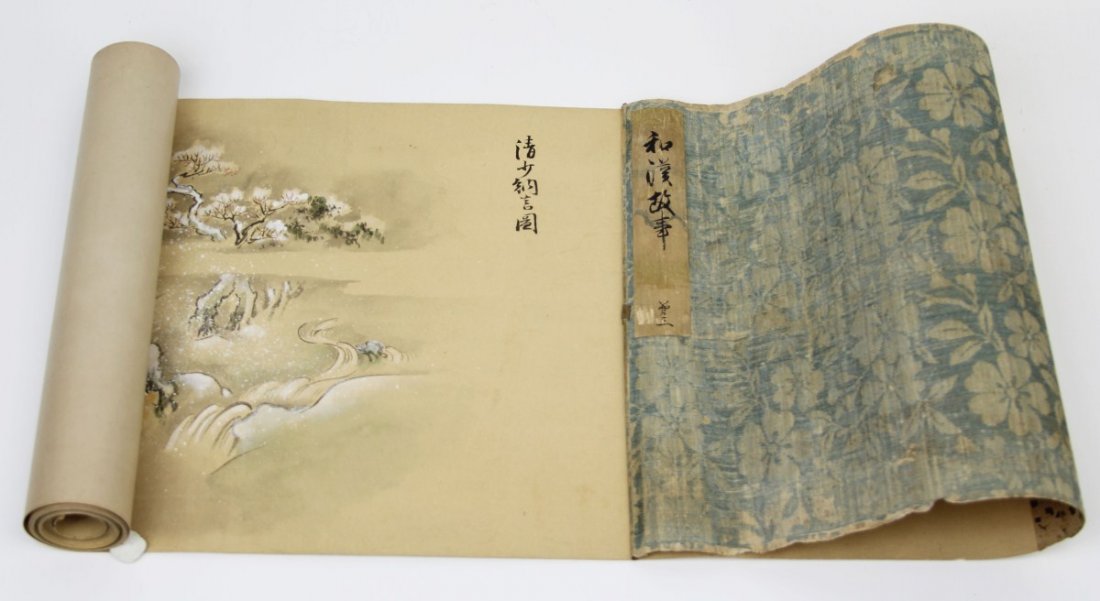 和漢故事
清少納言圖